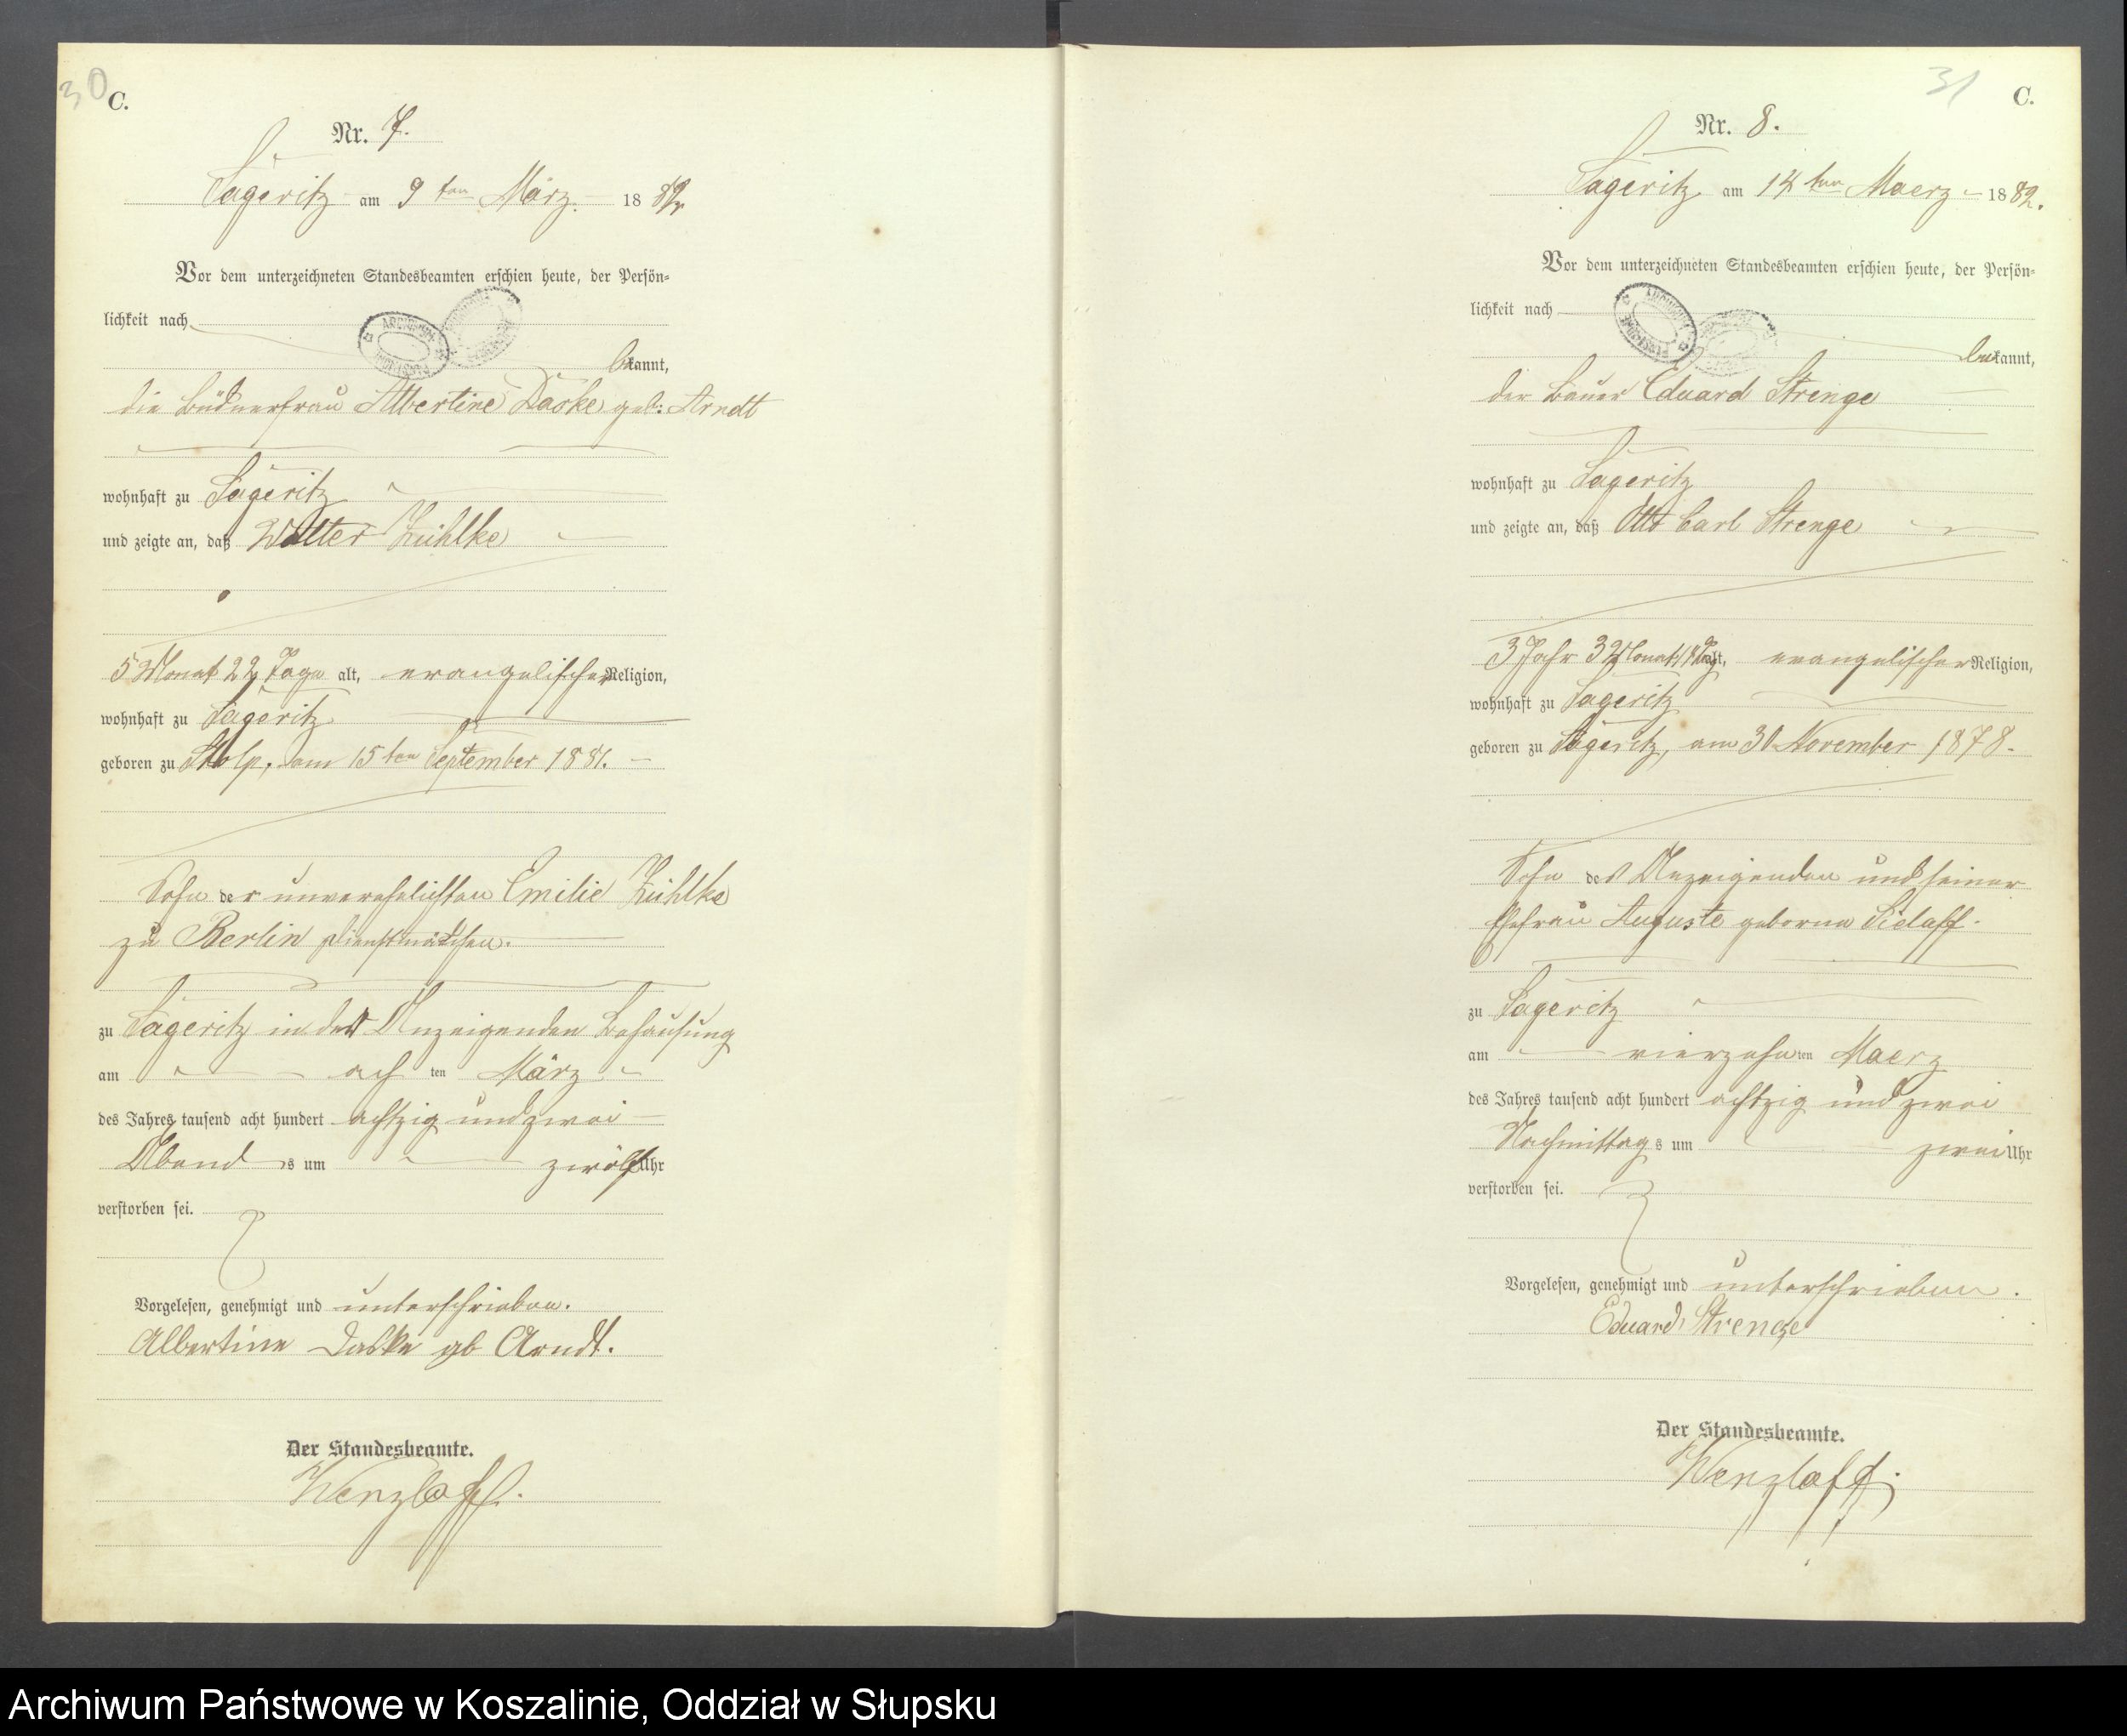 30
C.
Nr. 7.
Sageritz am 9 ten März 1882
Vor dem unterzeichneten Standesbeamten erschien heute, der Persön-
lichkeit nach
bekannt,
die Büdnerfrau Albertine Daske geb: Arndt
wohnhaft zu Sageritz
und zeigte an, daß Walter Zühlke
5 Monat 22 Tage alt, evangelischer Religion,
wohnhaft zu Sageritz
geboren zu Stolp, am 15 ten September 1881.
Sohn der unverehelichten Emilie Zühlke
zu Berlin Dienstmädchen.
zu Sageritz in der Anzeigenden Behausung
am ach ten März
des Jahres tausend acht hundert achtzig und zwei
Abend s um zwölf Uhr
verstorben sei.
Vorgelesen, genehmigt und unterschrieben.
Albertine Daske gb Arndt.
Der Standesbeamte.
Wenzlaff.
31
C.
Nr. 8.
Sageritz am 14 ten Maerz 1882.
Vor dem unterzeichneten Standesbeamten erschien heute, der Persön-
lichkeit nach
bekannt,
der Bauer Eduard Strenge
wohnhaft zu Sageritz
und zeigte an, daß Otto Carl Strenge
3 Jahr 3 Monat alt, evangelischer Religion,
wohnhaft zu Sageritz
geboren zu Sageritz, am 30 November 1878.
Sohn des Anzeigenden und seiner
Ehefrau Auguste geborne Sielaff.
zu Sageritz
am vierzehnten Maerz
des Jahres tausend acht hundert achtzig und zwei
Nachmittag s um zwei Uhr
verstorben sei.
Vorgelesen, genehmigt und unterschrieben.
Eduard Strenge
Der Standesbeamte.
Wenzlaff.
Archiwum Państwowe w Koszalinie, Oddział w Słupsku